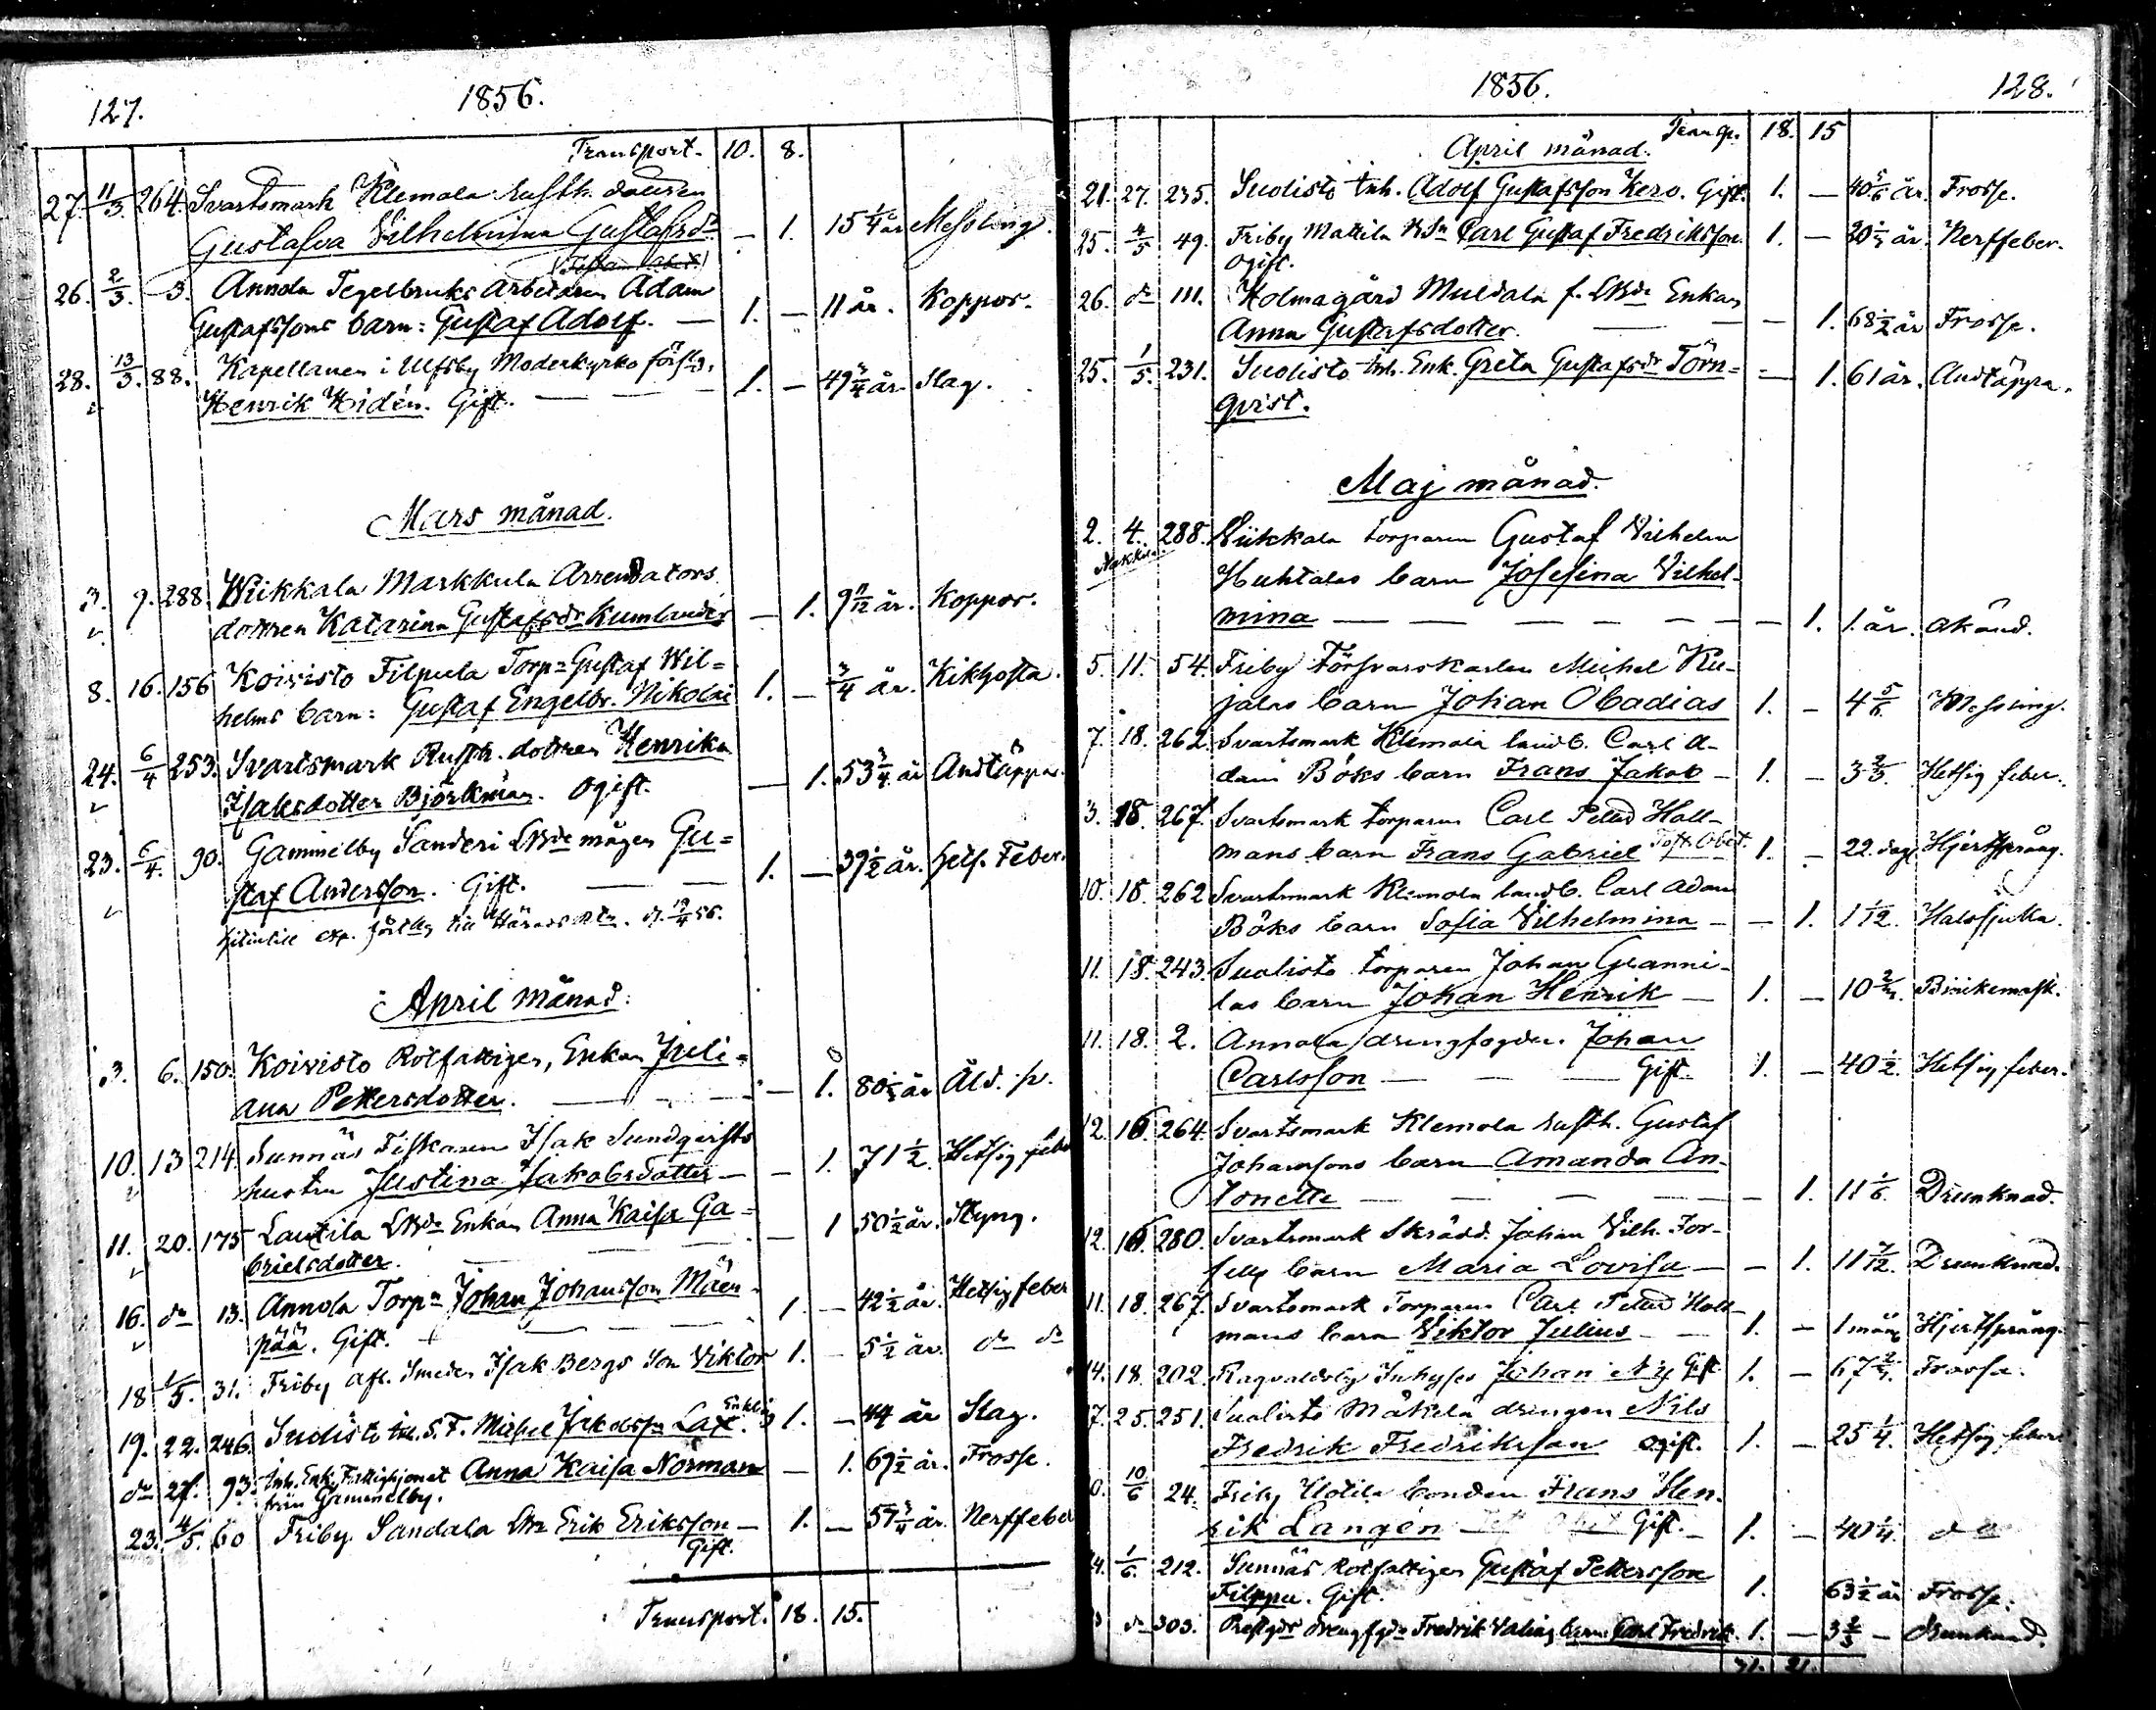 127. 1856.
Transport. 10. 8.
27. 11/3. 264. Svartsmark Klemola Rusth. dottren
Gustafva Vilhelmina Gustafsdr — 1. 15 1/4 år Messling.
26. 2/3. 3. Annola Tegelbruks Arbetaren Adam
Gustafssons barn: Gustaf Adolf. — 1. — 11 år. Koppor.
28. 13/3. 88. Kapellanen i Ulfsby Moderkyrko förslg.
Henrik Hidén. Gift. — 1. — 49 3/4 år Slag.
Mars månad.
3. 9. 288. Wiikkala Markkula Arrendators
dottren Katarina Gustafsdr Kumlander — 1. 9 11/12 år. Koppor.
8. 16. 156 Koivisto Filpula Torp= Gustaf Wil=
helms barn: Gustaf Engelbr. Nikolai 1. — 3/4 år. Kikhosta.
24. 6/4 253. Svartsmark Rusth. dottren Henrika
Isaksdotter Björkman. Ogift. — 1. 53 3/4 år Andtäppa.
23. 6/4. 90. Gammelby Sanderi LBde mågen Gu=
staf Andersson. Gift. — 1. — 39 1/2 år. Hets. Feber.
till Härads
April månad.
3. 6. 150. Koivisto Rotfattigen, Enkan Juli=
ana Pettersdotter. — 1. 80 år Åld.
10. 13 214. Sunnäs Fiskaren Isak Sundqvists
hustru Justina Jakobsdotter — 1. 71 1/2. Hetsig feber
11. 20. 175 Lautila LBde Enkan Anna Kaisa Ga=
brielsdotter. — 1 50 1/2 år. Styng.
16. do 13. Annola Torpn Johan Johansson Mäen=
pää. Gift. 1. — 42 1/2 år. Hetsig feber
18 1/5. 31. Friby afl. Smeden Isak Bergs Son Viktor 1. — 5 1/2 år. do do
19. 22. 246. Suolisto inh. S. F. Michel Jakobsson Lax. Enkling 1. — 44 år Slag.
do 27. 93. Inh. Enk. Fattighjonet Anna Kaisa Norman — 1. 69 1/2 år. Frosse.
från Gammelby.
23. 4/5. 60 Friby Sandala Erik Eriksson — 1. — 57 3/4 år. Nerffeber
Gift.
Transport. 18. 15.
1856. 128.
Transp. 18. 15
April månad.
21. 27. 235. Suolisto Inh. Adolf Gustafsson Kero. Gift. 1. — 40 5/6 år. Frosse.
25. 4/5 49. Friby Mattila Carl Gustaf Fredriksson. 1. — 20 år. Nerffeber.
Ogift.
26. do 111. Holmagård Muldala f. LBde Enkan
Anna Gustafsdotter. — 1. 68 1/2 år Frosse.
25. 1/5. 231. Suolisto Inh. Enk. Greta Gustafsdr Törn= — 1. 61 år. Andtäppa.
qvist.
Maj månad.
2. 4. 288. Wiikkala torparen Gustaf Vilhelm
Huhtalas barn Josefina Vilhel-
mina — 1. 1 år. Okänd.
5. 11. 54. Friby Försvarskarlen Michel Ku-
jalas barn Johan Obadias 1. — 4 5/6. Messling.
7. 18. 262. Svartsmark Klemola landb. Carl A-
dam Böks barn Frans Jakob — 1. — 3 2/3. Hetsig feber.
3. 18. 267. Svartsmark torparen Carl Petter Holl-
mans barn Frans Gabriel 1. — 22. dag. Hjertsprång.
10. 18. 262 Svartsmark Klemola landb. Carl Adam
Böks barn Sofia Vilhelmina — 1. 1 1/12. Halssjuka.
11. 18. 243. Suolisto torparen Johan Granni-
las barn Johan Henrik — 1. — 10 Binikemask.
11. 18. 2. Annola drengfogden. Johan
Carlsson — Gift. 1. — 40 1/2. Hetsig feber.
12. 16. 264. Svartsmark Klemola Rusth. Gustaf
Johanssons barn Amanda An-
tonette — 1. 11 1/6. Drunknad.
12. 16. 280. Svartsmark Skrädd. Johan Vilh. For-
sells barn Maria Lovisa — 1. 11 7/12. Drunknad.
11. 18. 267. Svartsmark Torparen Carl Petter Holl-
mans barn Viktor Julius — 1. — 1 mån. Hjertsprång.
14. 18. 202. Ragvaldsby Inhyses Johan Ny Gift 1. — 67 Frossa.
17. 25. 251. Suolisto Mäkelä drengen Nils
Fredrik Fredriksson Ogift. 1. — 25 1/4. Hetsig feber
10/6 24. Friby Uotila bonden Frans Hen-
rik Langén Gift. — 1. — 40 1/4. do
1/6. 212. Sunnäs Rotfattigen Gustaf Pettersson
Filppu. Gift. 1. 63 1/2 år Frosse.
do 303. Prestgdr drengfgdn Fredrik Valins barn Carl Fredrik. 1. — 3 2/3 — Drunknad.
31. 21.